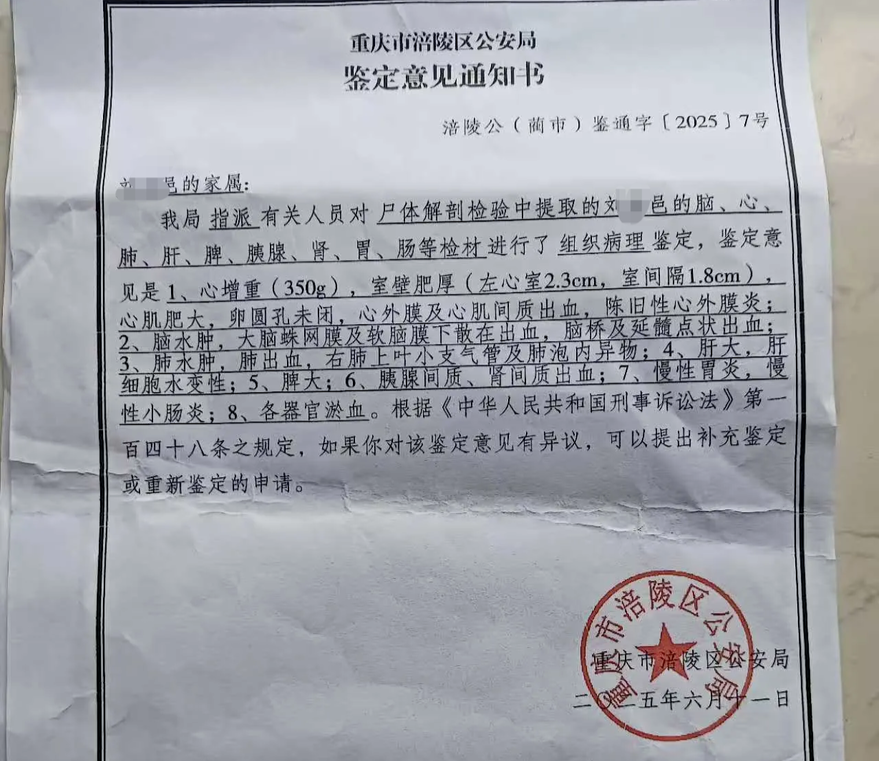 重庆市涪陵区公安局
鉴定意见通知书
涪陵公（蔺市）鉴通字〔2025〕7号
邑的家属：
我局 指派 有关人员对 尸体解剖检验中提取的刘 邑的脑、心、
肺、肝、脾、胰腺、肾、胃、肠等检材 进行了 组织病理 鉴定，鉴定意
见是 1、心增重（350g），室壁肥厚（左心室2.3cm，室间隔1.8cm），
心肌肥大，卵圆孔未闭，心外膜及心肌间质出血，陈旧性心外膜炎；
2、脑水肿，大脑蛛网膜及软脑膜下散在出血，脑桥及延髓点状出血；
3、肺水肿，肺出血，右肺上叶小支气管及肺泡内异物；4、肝大，肝
细胞水变性；5、脾大；6、胰腺间质、肾间质出血；7、慢性胃炎，慢
性小肠炎；8、各器官淤血。根据《中华人民共和国刑事诉讼法》第一
百四十八条之规定，如果你对该鉴定意见有异议，可以提出补充鉴定
或重新鉴定的申请。
重庆市涪陵区公安局
重庆市涪陵区公安局
二〇二五年六月十一日